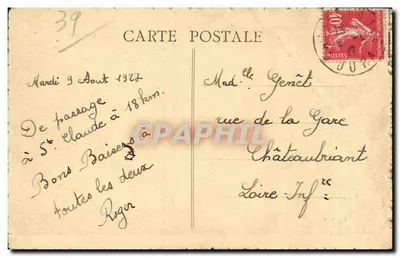 39
CARTE POSTALE
Mardi 9 Aout 1927
De passage
à St Claude à 18 km.
Bons Baisers à
toutes les deux
Roger
Madelle Genêt
rue de la Gare
Châteaubriant
Loire-Infre
40c
POSTES
JURA
CPAPHIL